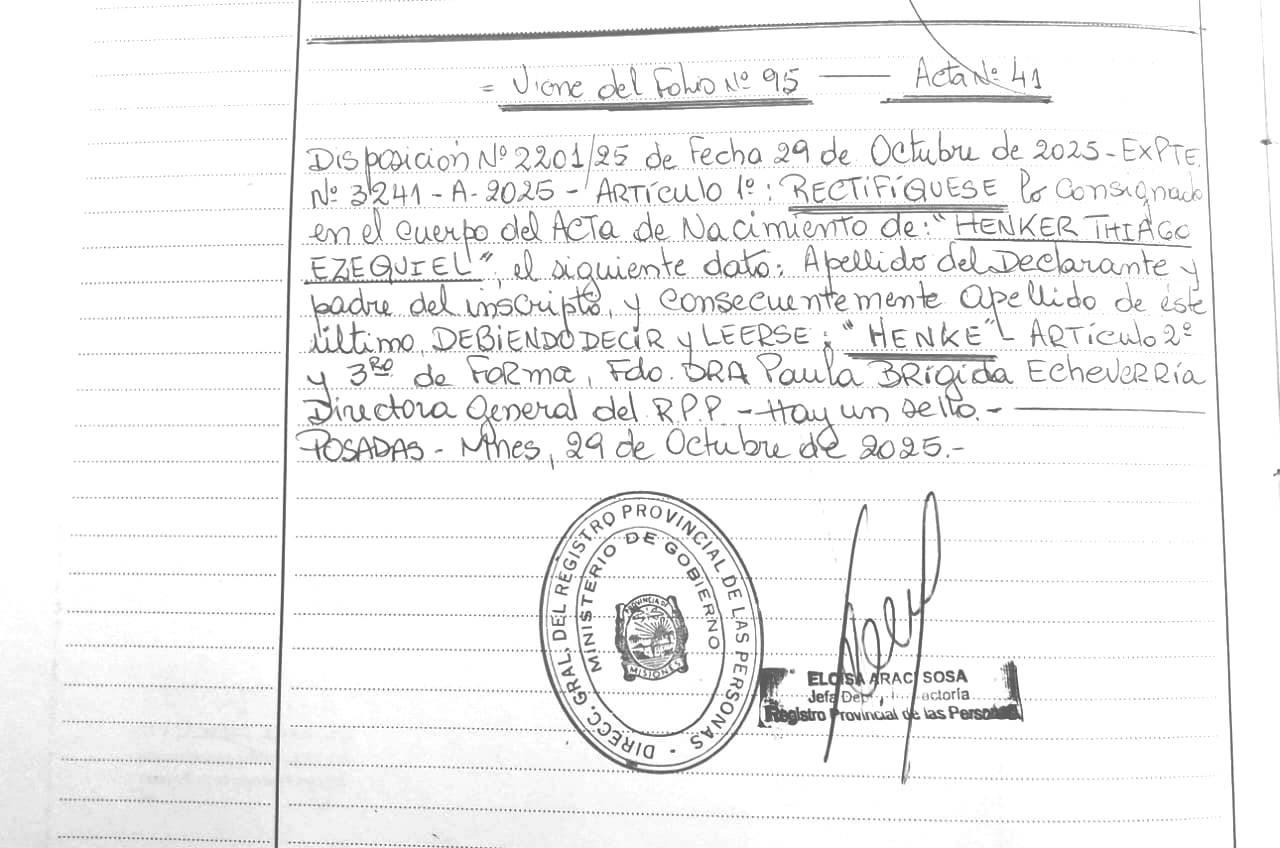 = Viene del Folio Nº 95 — Acta Nº 41
Disposición Nº 2201/25 de Fecha 29 de Octubre de 2025 - EXPTE.
Nº 3241 - A - 2025 - ARTÍCULO 1º: RECTIFÍQUESE lo Consignado
en el cuerpo del ACTA de Nacimiento de: "HENKER THIAGO
EZEQUIEL", el siguiente dato: Apellido del Declarante y
padre del inscripto, y consecuentemente apellido de éste
último, DEBIENDO DECIR y LEERSE: "HENKE" - ARTÍCULO 2º
y 3RO de Forma, Fdo. DRA Paula BRÍGIDA Echeverría
Directora General del R.P.P. - Hay un sello. -
POSADAS - Mnes, 29 de Octubre de 2025.-
DIRECC. GRAL. DEL REGISTRO PROVINCIAL DE LAS PERSONAS
MINISTERIO DE GOBIERNO
PROVINCIA DE
MISIONES
ELOISA ARACI SOSA
Jefa
Registro Provincial de las Personas